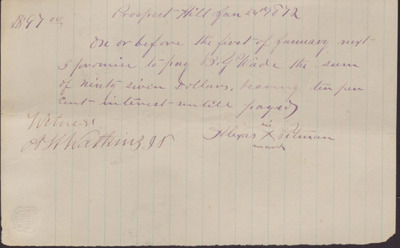 Prospect Hill Jan 24th 1872
On or before the first of January next
I promise to pay Wade the sum
of Ninty seven Dollars, bearing ten per
cent interest untill payed
his
Alexis X Pitman
mark
Witness
Watkins JP